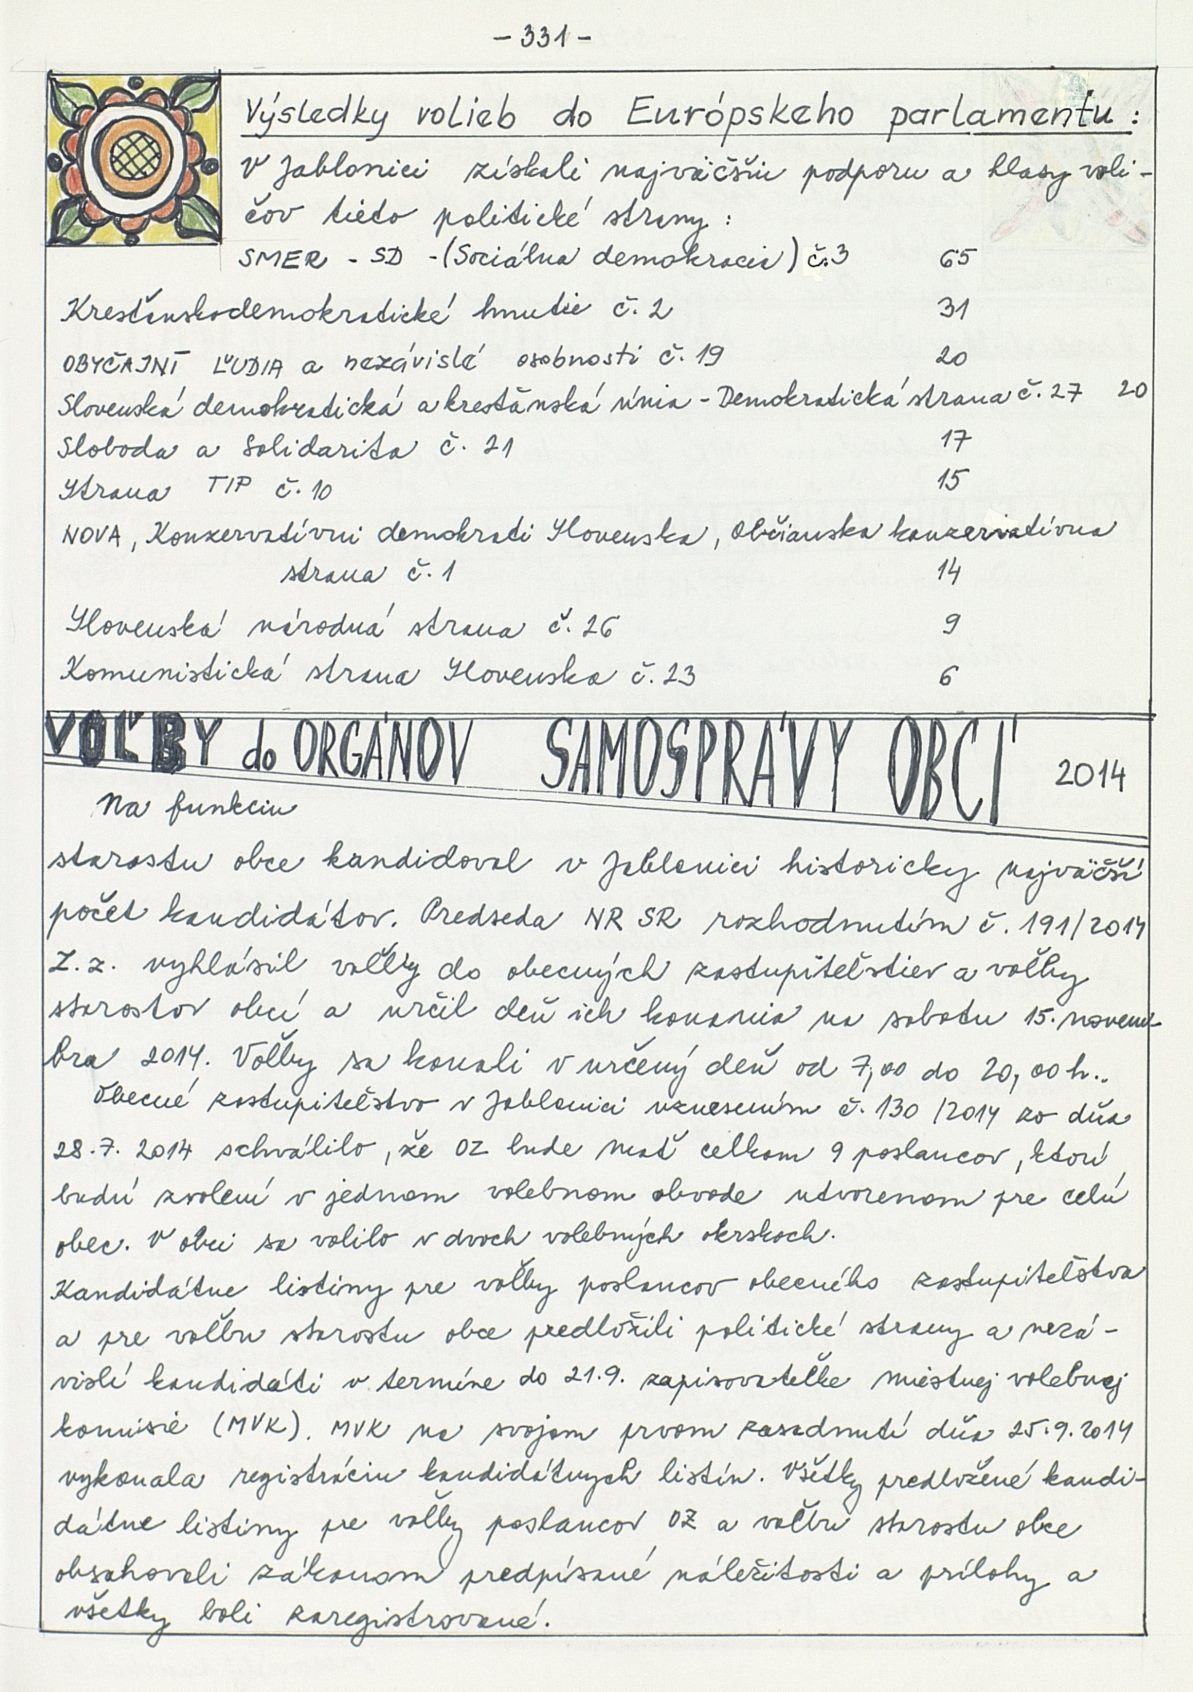 - 331 -
Výsledky volieb do Európskeho parlamentu:
V Jablonici získali najväčšiu podporu a hlasy voli-
čov tieto politické strany:
SMER - SD - (Sociálna demokracia) č.3 65
Kresťanskodemokratické hnutie č. 2 31
OBYČAJNÍ ĽUDIA a nezávislé osobnosti č. 19 20
Slovenská demokratická a kresťanská únia - Demokratická strana č. 27 20
Sloboda a Solidarita č. 21 17
Strana TIP č. 10 15
NOVA, Konzervatívni demokrati Slovenska, Občianska konzervatívna
strana č. 1 14
Slovenská národná strana č. 26 9
Komunistická strana Slovenska č. 23 6
VOĽBY do ORGÁNOV SAMOSPRÁVY OBCÍ 2014
Na funkciu
starostu obce kandidoval v Jablonici historicky najväčší
počet kandidátov. Predseda NR SR rozhodnutím č. 191/2014
Z. z. vyhlásil voľby do obecných zastupiteľstiev a voľby
starostov obcí a určil deň ich konania na sobotu 15. novem-
bra 2014. Voľby sa konali v určený deň od 7,00 do 20,00 h..
Obecné zastupiteľstvo v Jablonici uznesením č. 130/2014 zo dňa
28.7. 2014 schválilo, že OZ bude mať celkom 9 poslancov, ktorí
budú zvolení v jednom volebnom obvode utvorenom pre celú
obec. V obci sa volilo v dvoch volebných okrskoch.
Kandidátne listiny pre voľby poslancov obecného zastupiteľstva
a pre voľbu starostu obce predložili politické strany a nezá-
vislí kandidáti v termíne do 21.9. zapisovateľke miestnej volebnej
komisie (MVK). MVK na svojom prvom zasadnutí dňa 25.9.2014
vykonala registráciu kandidátnych listín. Všetky predložené kandi-
dátne listiny pre voľby poslancov OZ a voľbu starostu obce
obsahovali zákonom predpísané náležitosti a prílohy a
všetky boli zaregistrované.